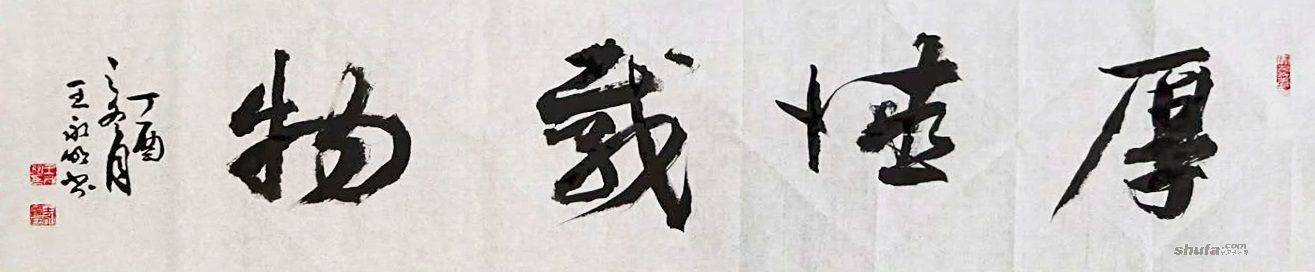 厚德载物
丁酉
之冬月
王永明书
shufa.com